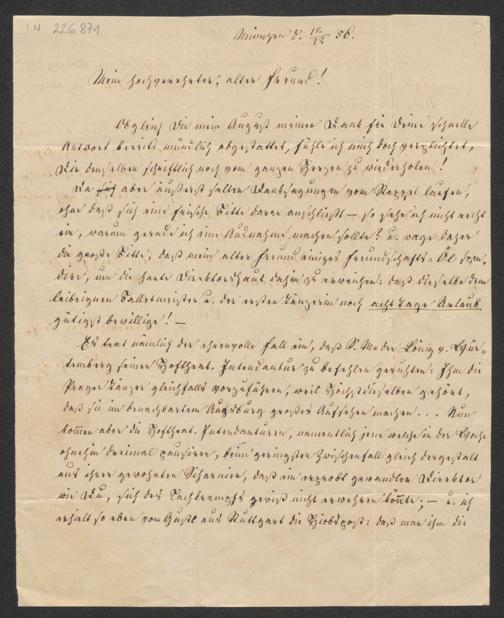 I.N. 226.871
München d. 12/12 56.
Mein hochverehrter, alter Freund!
Obgleich Dir mein August meinen Dank für Deine schnelle
Antwort bereits mündlich abgestattet, fühle ich mich doch verpflichtet,
Dir denselben schriftlich noch vom ganzen Herzen zu wiederholen!
Da aber äußerst selten Danksagungen vom Stappel laufen,
ohne daß sich eine frische Bitte daran anschließt — so sehe ich nicht recht
ein, warum gerade ich eine Ausnahme machen sollte? u. wage daher
die große Bitte, daß mein alter Freund einiges Freundschafts-Öl spen,
dire, um die harte Direktorshaut dahin zu erweichen: daß dieselbe dem
leibeignen Balletmeister u. der ersten Tänzerin noch acht Tage Urlaub
gütigst bewillige! —
Es trat nämlich der ehrenvolle Fall ein, daß S. M. der König v. Wür-
temberg seiner Hoftheat. Intendantur zu befehlen geruhten: Ihm die
Prager Tänzer gleichfalls vorzuführen, weil Höchstdieselben gehört,
daß sie im benachbarten Augsburg großes Aufsehen machen... Nun
kommen aber die Hoftheat. Intendanturen, namentlich jene welche in der Woche
ohnehin dreimal pausieren, beim geringsten Zwischenfall gleich dergestalt
aus ihren gewohnten Scharnieren, daß ein erprobt gewandter Direktor
wie Du, sich des Lachkrampfs gewiß nicht erwehren könnte; — u. ich
erhielt so eben vom Gustl aus Stuttgart die Hiobspost: daß man ihm die